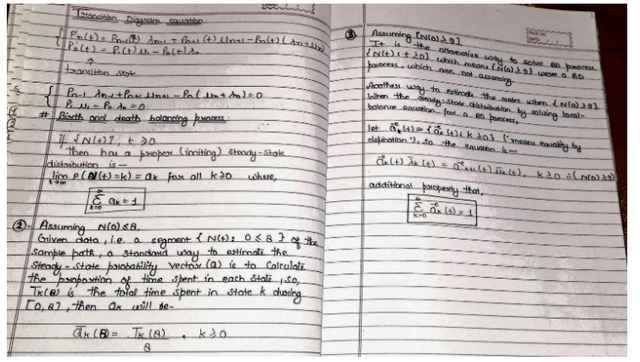 Transition Diagram equation
Pn'(t) = Pn-1(t) λn-1 + Pn+1(t) μn+1 - Pn(t) (λn+μn)
P0'(t) = P1(t) μ1 - P0(t) λ0
↑
transition state
Pn-1 λn-1 + Pn+1 μn+1 - Pn (μn + λn) = 0
P1 μ1 - P0 λ0 = 0
# Birth and death balancing process:
if {N(t)}, t ≥ 0
then has a proper (limiting) steady-state
distribution is —
lim P(N(t)=k) = ak for all k ≥ 0 where,
t→∞
∞ Σ k=0 ak = 1
② Assuming N(0) ≤ 8,
Given data, i.e. a segment { N(t): 0 ≤ 8 } of the
sample path, a standard way to estimate the
steady-state probability vector (a) is to calculate
the proportion of time spent in each state, so,
Tk(8) is the total time spent in state k during
[0, 8], then ak will be-
āk(8) = Tk(8) / 8 , k ≥ 0
③ Assuming [N(0) ≥ 9]
It is the alternative way to solve BD process
{N(t): t ≥ 0} which means {N(0) ≥ 9} were a BD
process, which are not assuming
Another way to estimate the rates when {N(0) ≥ 9}
when the steady-state distribution by solving local-
balance equation for a BD process,
let (t) = { (t): k ≥ 0} ("means equality by
definition"), so the equation is —
(t) λk(t) = k+1(t) (t), k ≥ 0 ∴ (N(0) ≥ 9)
additional property that,
∞ Σ k=0 (t) = 1